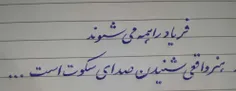 فریاد را همه می شنوند
هنر واقعی شنیدن صدای سکوت است ...